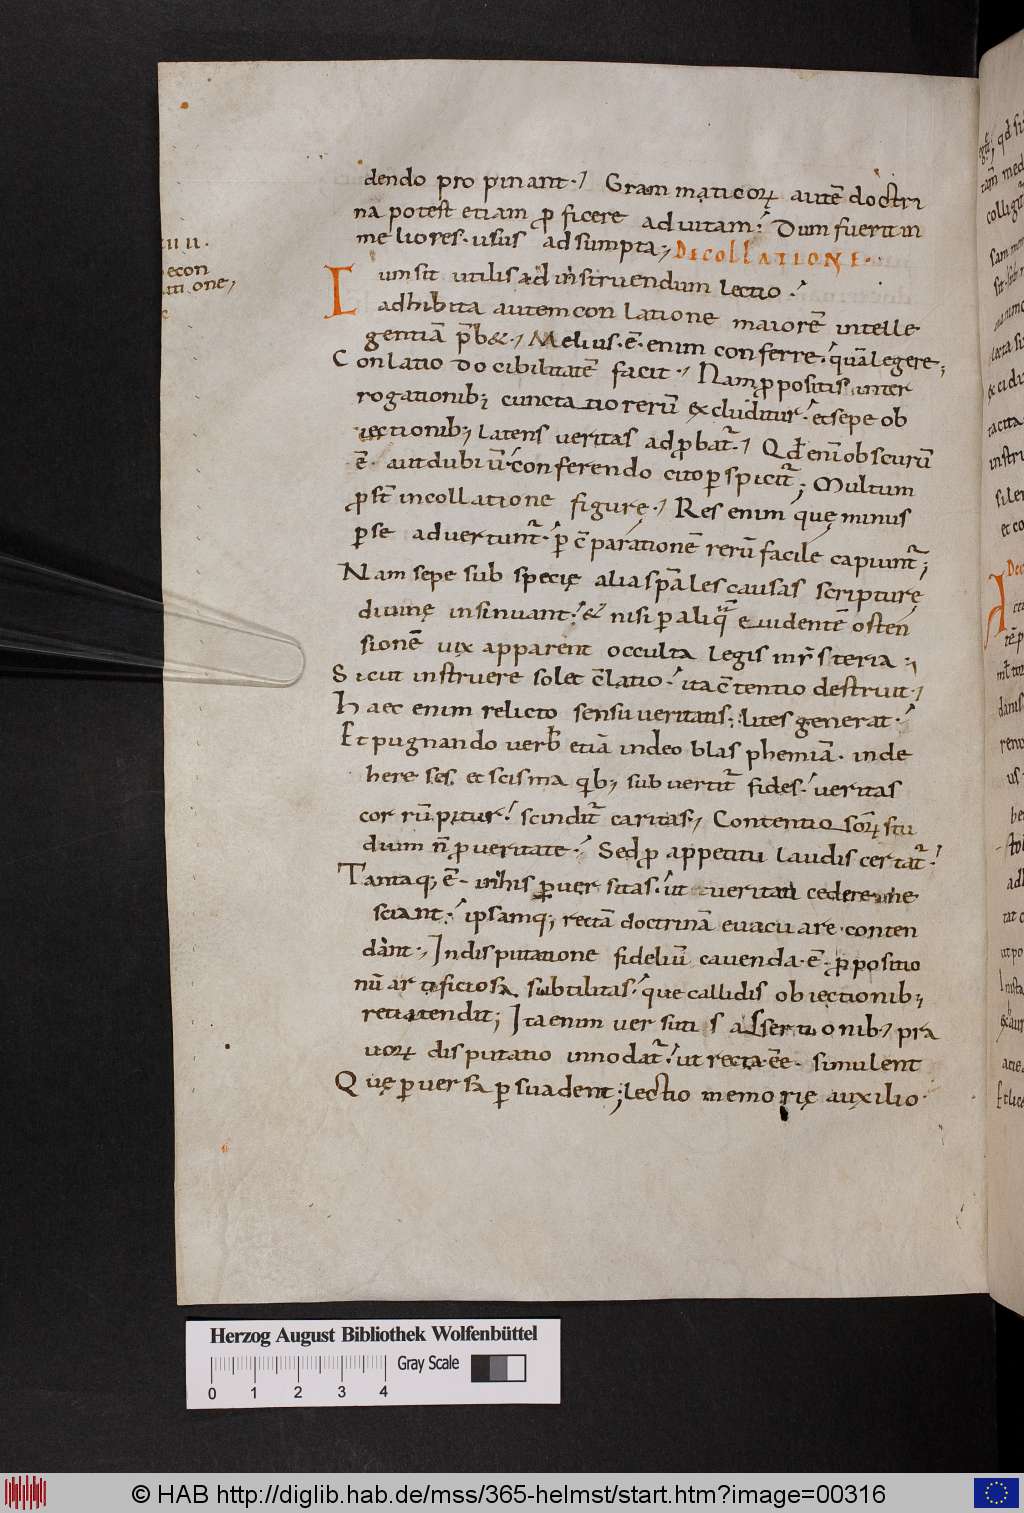 dendo pro pinant·/ Gram maticoꝝ autē doctri
na potest etiam ꝓ ficere ad uitam:́ Dum fuerit in
meliores· usus adsumpta;, DE COLLATIONE·
umsit utilis ad instruendum lectio·́
adhibita autem con latione maiorē intelle
gentiā p̄b&·/ Melius· ē· enim conferre·́ quā legere;
Conlatio docibilitatē facit·/ Nam ꝓpositis inter
rogationib; cunctatio rerū excluditur·́ et sepe ob
iectionib; latens ueritas adꝓbat̄·/ Qd̄ enī obscurū
ē· aut dubiū·́ conferendo cito ꝑspicit̄; Multum
ꝓsт̄ in collatione figurę·/ Res enim quę minus
ꝑse aduertunt̄·́ ꝑ c̄parationē rerū facile capiunt̄;
Nam sepe sub specię alia sp̄ales causas scripturę
diuinę insinuant·́ & nisi ꝑ aliq̄ euidentē osten
sionē uix apparent occulta legis mẏsteria;,
Sicut instruere solet c̄latio·́ ita c̄tentio destruit·/
Haec enim relicto sensu ueritatis; lites generat·́
Et pugnando uerb̄ etiā in deo blasphemiā· inde
here ses· et scisma q̄b; subuertit̄ fides·́ ueritas
corrūpitur·́ scindit̄ caritas·, Contentio soꝝ stu
dium n̄ ꝓ ueritate·́ Sed ꝓ appetitu laudis certat̄·́
Tantaq; ē· in his ꝑuersitas·́ ut ueritati cedere ne
sciant·́ ipsamq; rectā doctrinā euacuare conten
dant·, In disputatione fideliū cauenda· ē· ꝓpositio
nū artificiosa subtilitas·́ que callidis obiectionib;
retia tendit; Ita enim uersutis assertionib; pra
uoꝝ disputatio innodat̄·́ ut recta· ēe· simulent
Quę ꝑuersa ꝑsuadent; lectio memorię auxilio·
econ
Herzog August Bibliothek Wolfenbüttel
Gray Scale
0 1 2 3 4
© HAB http://diglib.hab.de/mss/365-helmst/start.htm?image=00316